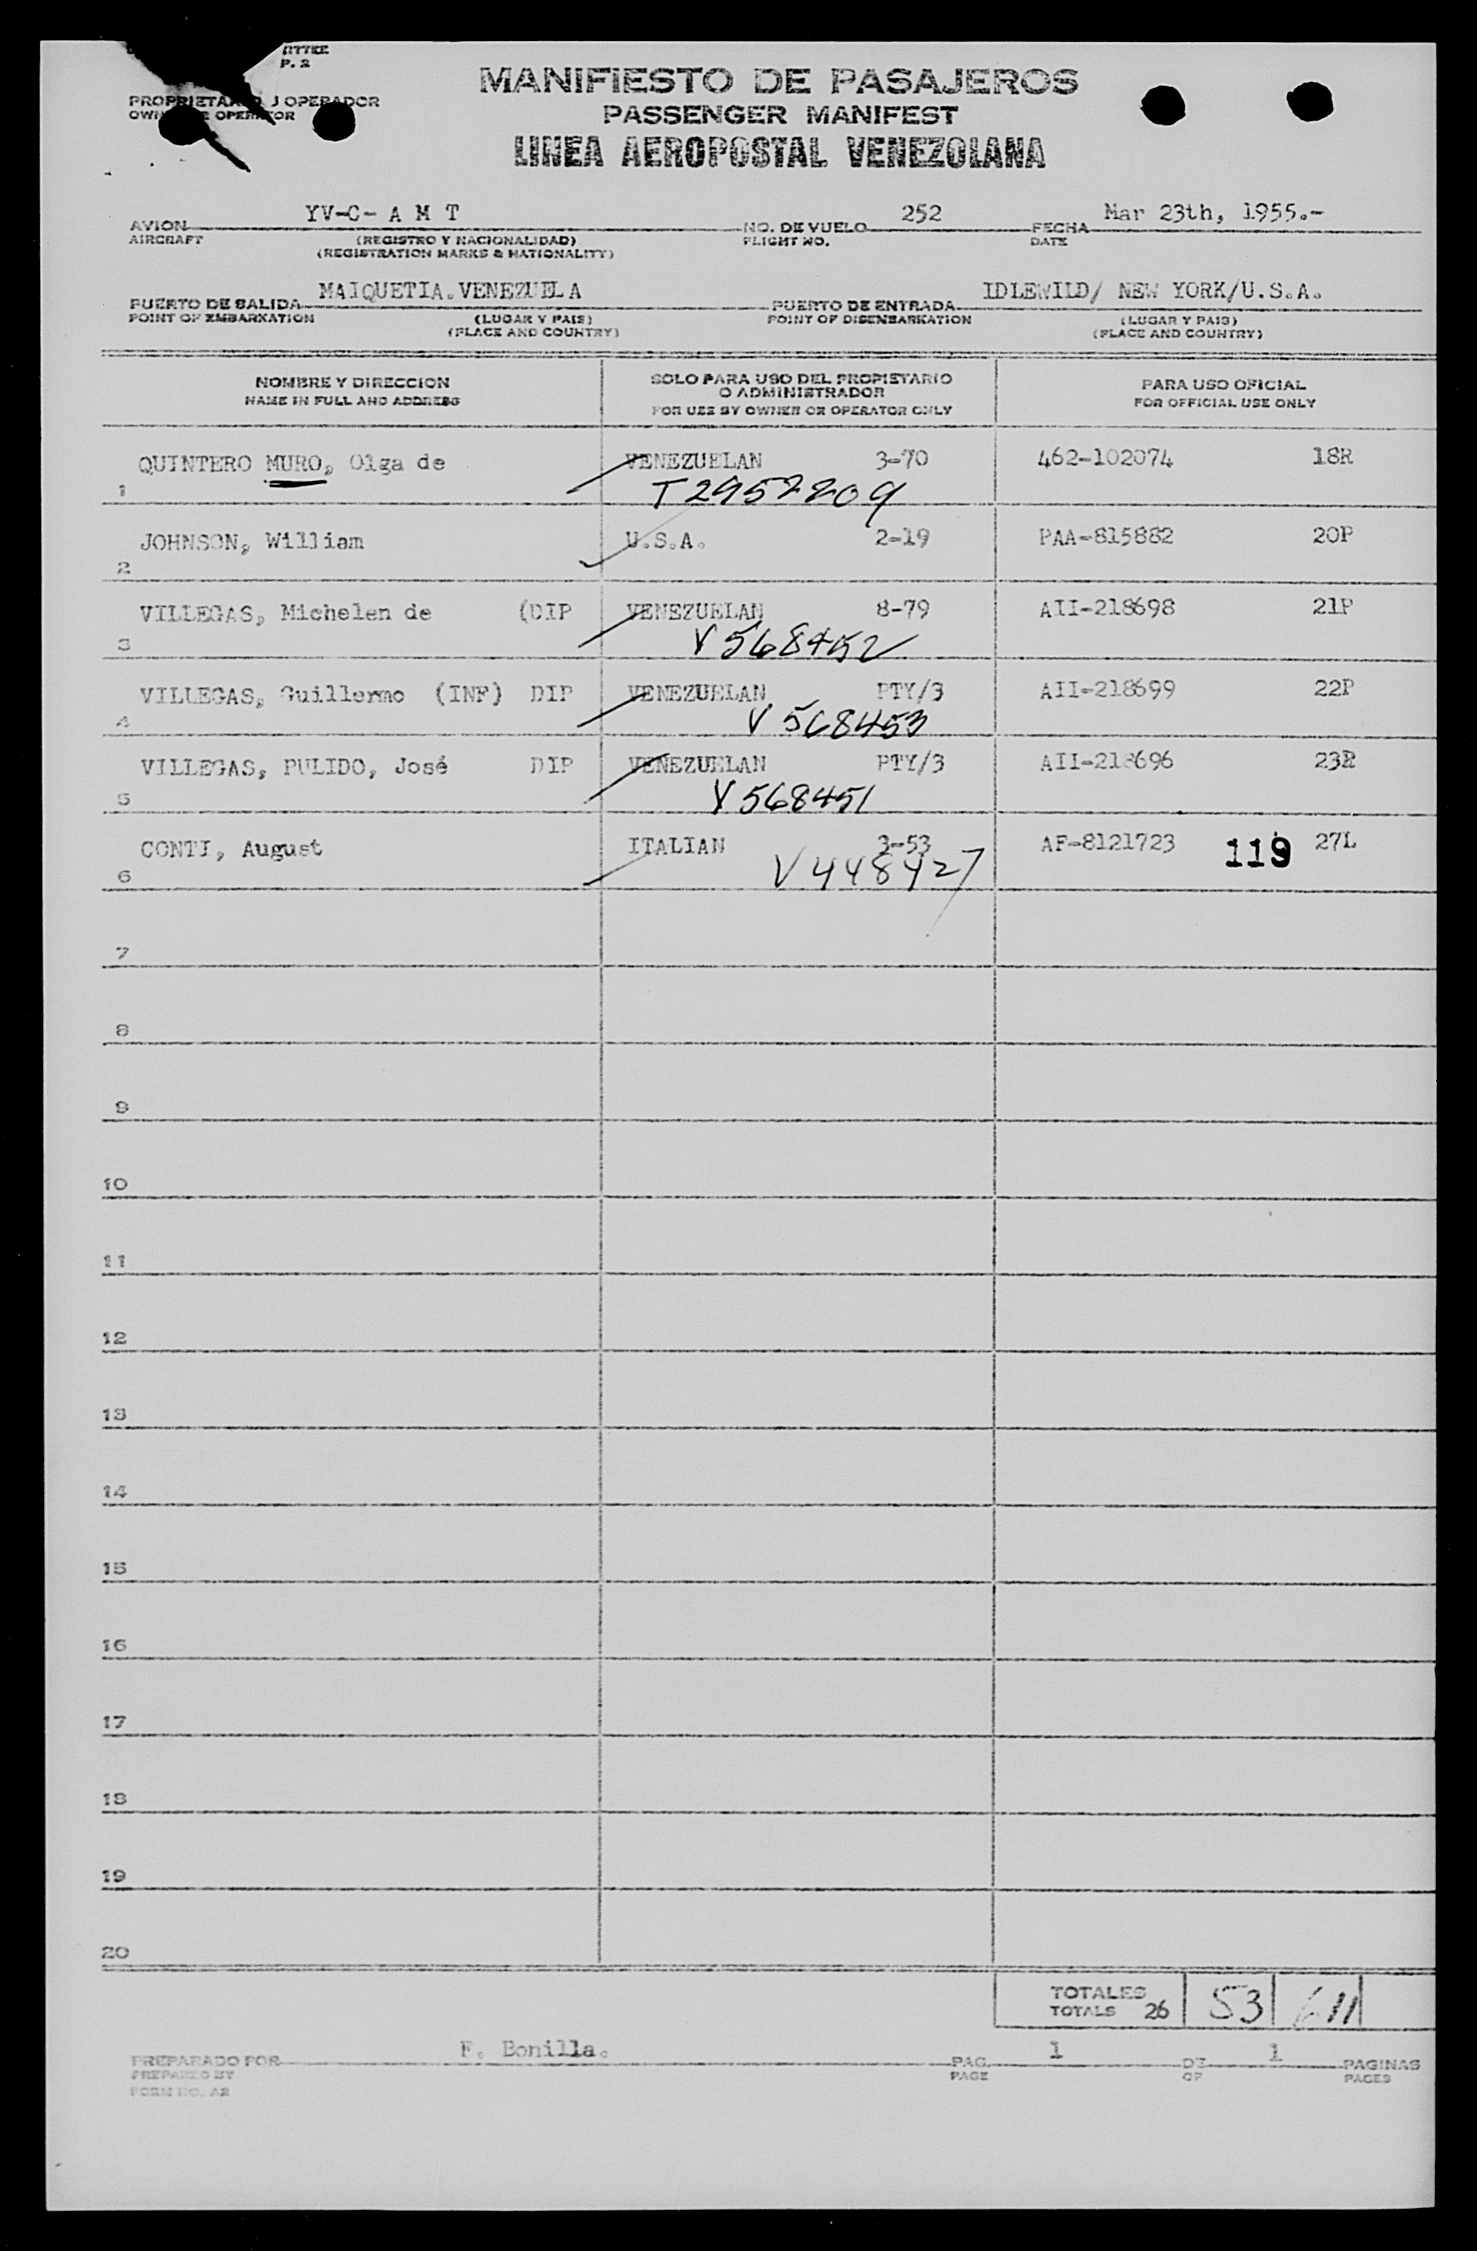 ITTEE
P. 2
MANIFIESTO DE PASAJEROS
PASSENGER MANIFEST
LINEA AEROPOSTAL VENEZOLANA
OPERADOR
AVION YV-C- A M T NO. DE VUELO 252 FECHA Mar 23th, 1955.-
AIRCRAFT (REGISTRO Y NACIONALIDAD) FLIGHT NO. DATE
(REGISTRATION MARKS & NATIONALITY)
PUERTO DE SALIDA MAIQUETIA.VENEZUELA PUERTO DE ENTRADA IDLEWILD/ NEW YORK/U.S.A.
POINT OF EMBARKATION (LUGAR Y PAIS) POINT OF DISEMBARKATION (LUGAR Y PAIS)
(PLACE AND COUNTRY) (PLACE AND COUNTRY)
NOMBRE Y DIRECCION SOLO PARA USO DEL PROPIETARIO PARA USO OFICIAL
O ADMINISTRADOR
NAME IN FULL AND ADDRESS FOR USE BY OWNER OR OPERATOR ONLY FOR OFFICIAL USE ONLY
QUINTERO MURO, Olga de VENEZUELAN 3-70 462-102074 18R
1 T2952209
JOHNSON, William U.S.A. 2-19 PAA-815882 20P
2
VILLEGAS, Michelen de (DIP VENEZUELAN 8-79 AII-218698 21P
3 V568452
VILLEGAS, Guillermo (INF) DIP VENEZUELAN PTY/3 AII-218699 22P
4 V 568453
VILLEGAS, PULIDO, José DIP VENEZUELAN PTY/3 AII-218696 23R
5 V568451
CONTI, August ITALIAN 3-53 AF-8121723 119 27L
6 V448427
7
8
9
10
11
12
13
14
15
16
17
18
19
20
TOTALES
TOTALS 26 53 11
PREPARADO POR F. Bonilla. PAG. 1 DE 1 PAGINAS
PREPARED BY PAGE OF PAGES
FORM NO. A2